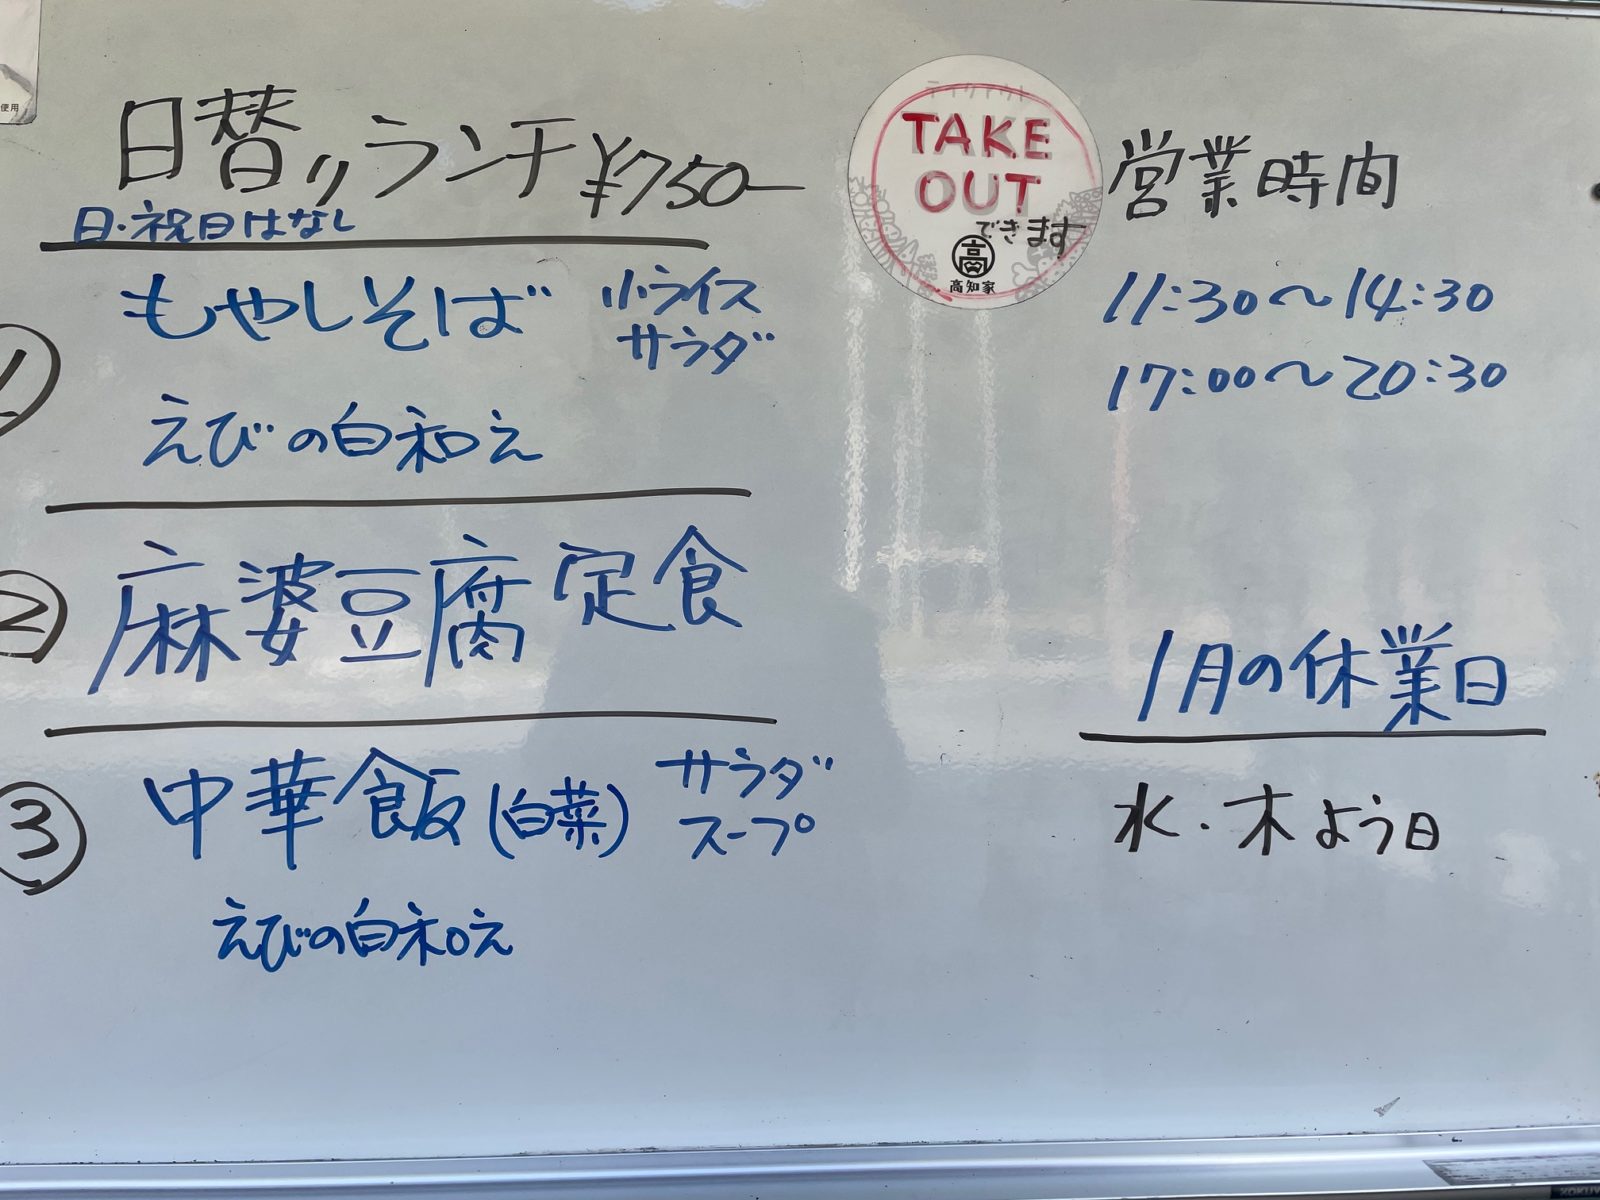 使用
日替りランチ ¥750-
日・祝日はなし
① もやしそば 小ライス
サラダ
えびの白和え
② 麻婆豆腐定食
③ 中華飯(白菜) サラダ
スープ
えびの白和え
テイクアウト
TAKE
OUT
できます
高
高知家
営業時間
11:30〜14:30
17:00〜20:30
1月の休業日
水・木よう日
KOKUYO